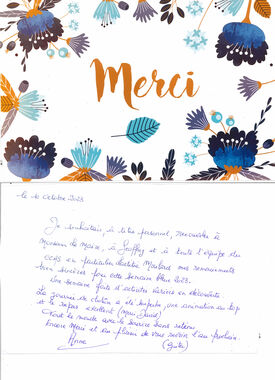 Merci
le 10 octobre 2023
Je souhaitais, à titre personnel, transmettre à
Monsieur le Maire, à Geoffroy et à toute l'équipe du
CCAS en particulier mes remerciements
bien sincères pour cette semaine bleue 2023.
Une semaine faite d'activités variées en découverte
La journée de clôture a été superbe, une animation au top
et le repas excellent (mon David)
Tout le monde avec le sourire sans retenue
Encore Merci et au plaisir de vous revoir l'an prochain.
Anne